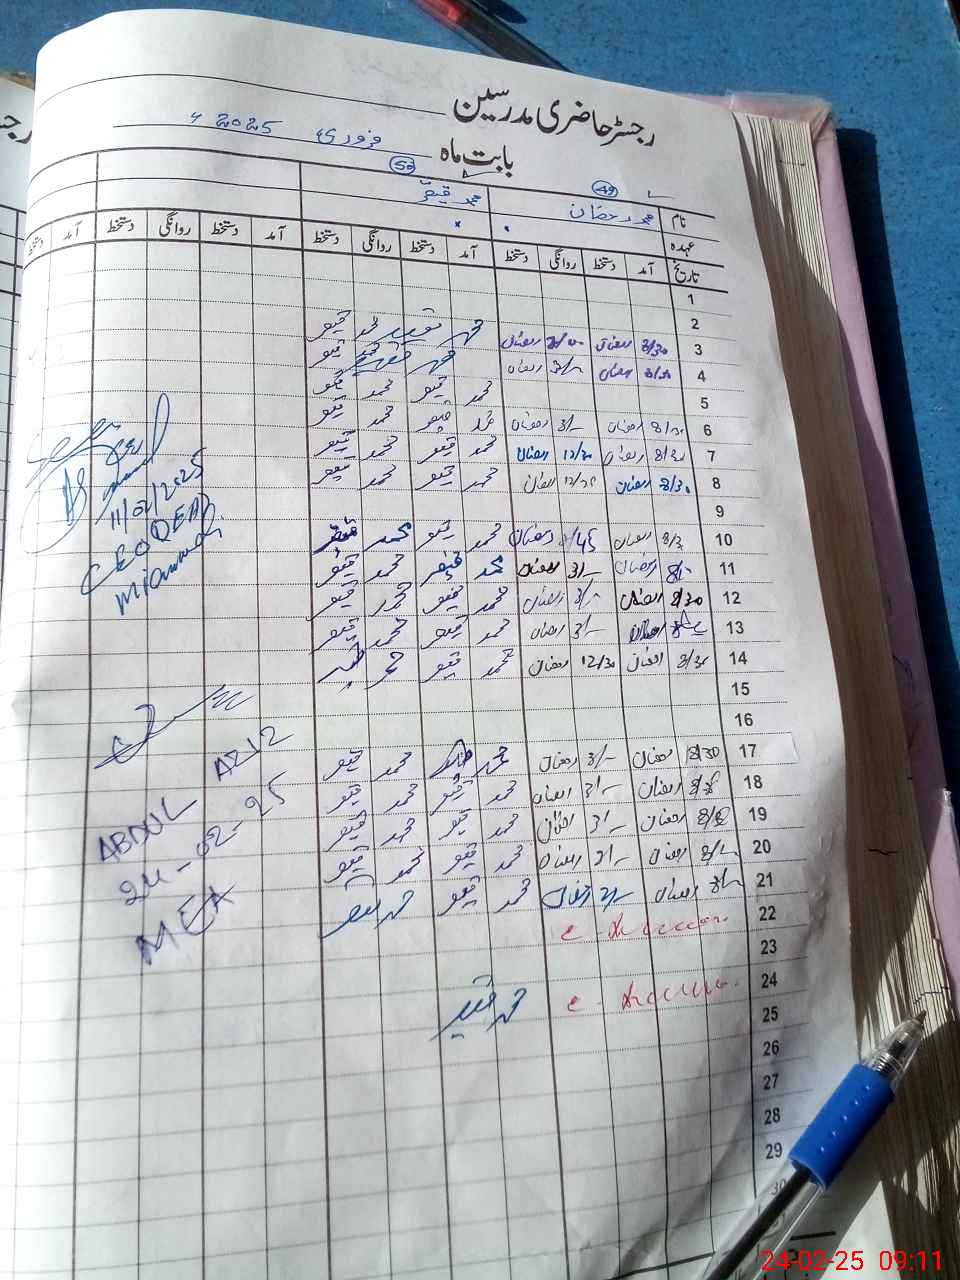 رجسٹر حاضری مدرسین
بابت ماہ فروری 2025ء
نام 49 محمد رمضان 50 محمد قیصر
عہدہ
تاریخ آمد دستخط روانگی دستخط آمد دستخط روانگی دستخط آمد دستخط روانگی دستخط آمد دستخط
1
2
3 8/30 رمضان رمضان محمد قیصر محمد قیصر
4 8/30 رمضان 3/- رمضان محمد قیصر محمد قیصر
5 محمد قیصر محمد قیصر
6 8/30 رمضان 3/- رمضان محمد قیصر محمد قیصر
7 8/30 رمضان 12/30 رمضان محمد قیصر محمد قیصر
8 8/30 رمضان 12/30 رمضان محمد قیصر محمد قیصر
9
10 رمضان 1/45 رمضان محمد قیصر محمد قیصر
11 8/- رمضان 3/- رمضان محمد قیصر محمد قیصر
12 8/30 رمضان 3/- رمضان محمد قیصر محمد قیصر
13 رمضان 3/- رمضان محمد قیصر محمد قیصر
14 8/30 رمضان 12/30 رمضان محمد قیصر محمد قیصر
15
16
17 8/30 رمضان 3/- رمضان محمد قیصر محمد قیصر
18 رمضان 3/- رمضان محمد قیصر محمد قیصر
19 رمضان 3/- رمضان محمد قیصر محمد قیصر
20 8/- رمضان 3/- رمضان محمد قیصر محمد قیصر
21 8/- رمضان 3/- رمضان محمد قیصر محمد قیصر
22
23
24 محمد قیصر
25
26
27
28
29
30
11/02/2025
CEO DEA
Mianwali
ABDUL AZIZ
24-02-25
MEA
24-02-25 09:11